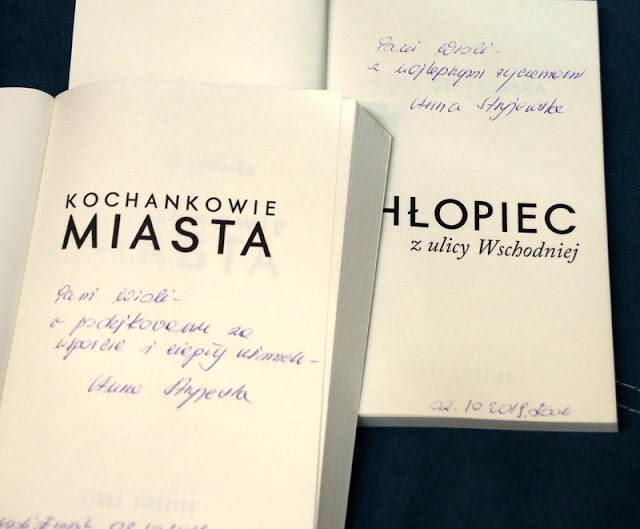 Pani Wioli -
z najlepszymi życzeniami
Anna Stryjewska
HŁOPIEC
z ulicy Wschodniej
02.10.2019, Łódź
KOCHANKOWIE
MIASTA
Pani Wioli -
w podziękowaniu za
wsparcie i ciepły uśmiech -
Anna Stryjewska